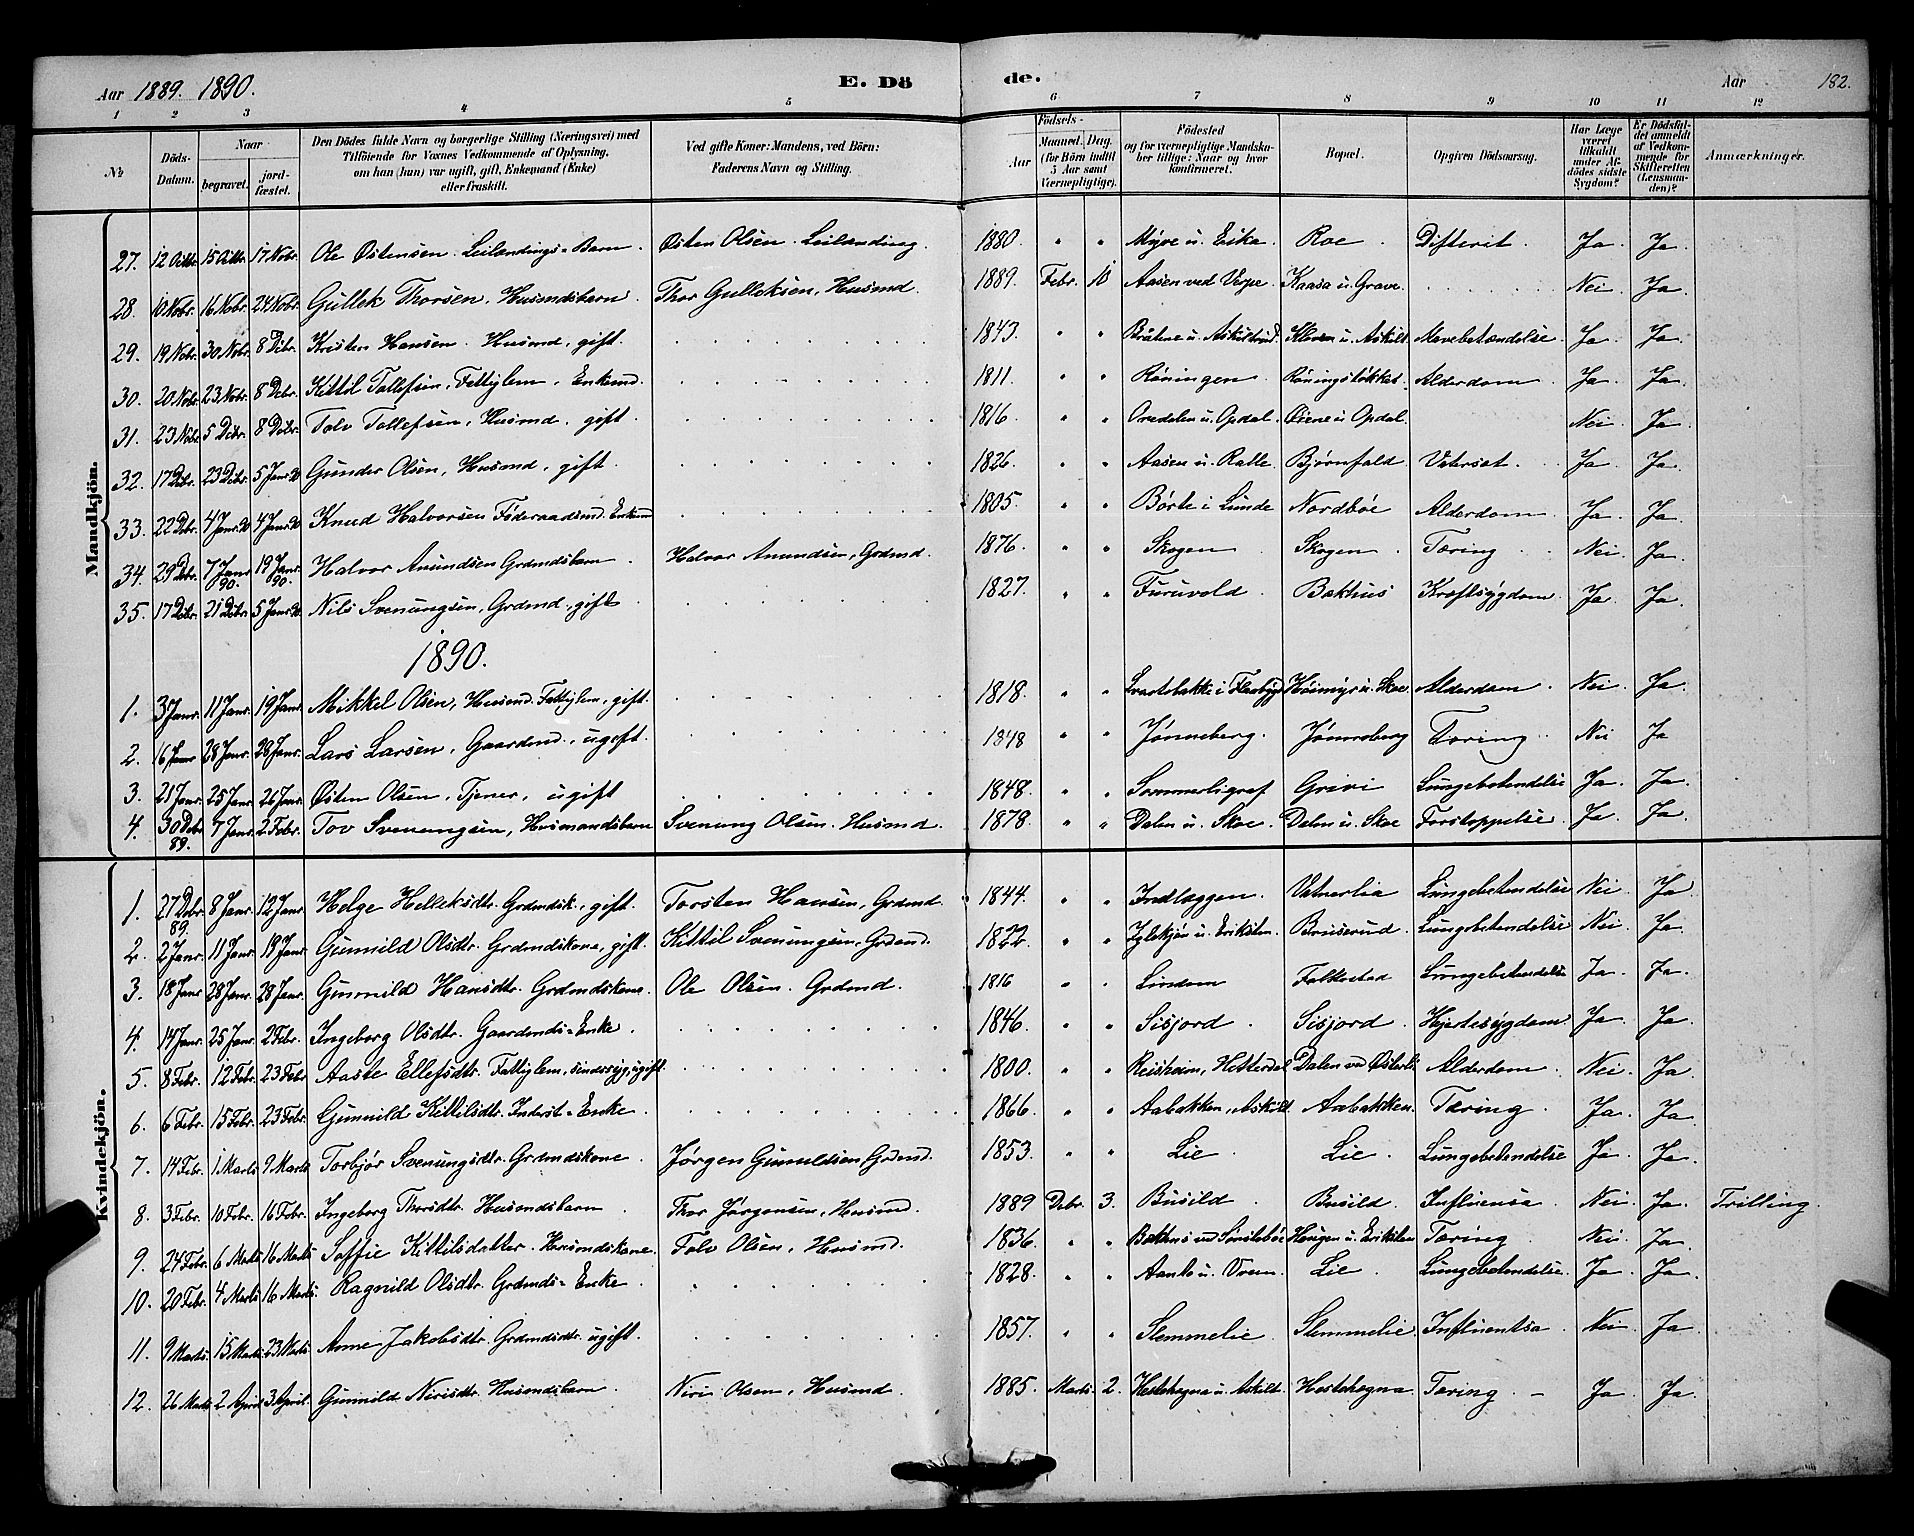 Aar 1889. 1890. E. Dö de. Aar 182.
1 2 3 4 5 6 7 8 9 10 11 12
№ Döds-Datum. Naar begravet. jord-fæstet. Den Dödes fulde Navn og borgerlige Stilling (Næringsvei) med Tilföiende for Voxnes Vedkommende af Oplysning, om han (hun) var ugift, gift, Enkemand (Enke) eller fraskilt. Ved gifte Koner: Mandens, ved Börn: Faderens Navn og Stilling. Födsels- Aar Maaned. Dag. (for Börn indtil 5 Aar samt Værnepligtige). Födested og for værnepligtige Mandska-ber tillige: Naar og hvor konfirmeret. Bopæl. Opgiven Dödsaarsag. Har Læge været tilkaldt under Af-dödes sidste Sygdom? Er Dödsfal-det anmeldt af Vedkom-mende for Skifteretten (Lensman-den)? Anmærkninger.
Mandkjön.
27. 12 Oktbr. 15 Oktbr. 17 Nobr. Ole Østensen. Leilændings-Barn. Østen Olsen. Leilænding. 1880. " " Myre u. Eika. Roe. Difterit. Ja. Ja.
28. 10 Nobr. 16 Nobr. 24 Nobr. Gullek Thorsen, Husmdsbarn. Thor Gulleksen, Husmd. 1889. Febr. 10 Aasen ved Verpe Kaasa u. Grave. Nei. Ja.
29. 19 Nobr. 30 Nobr. 8 Dcbr. Kristen Hansen. Husmd, gift. 1843. " " Bråtene u. Askilt Kleven u. Askilt Mavebetændelse. Ja. Ja.
30. 20 Nobr. 23 Nobr. 8 Dcbr. Kittil Tollefsen, Fattiglem, Enkemd. 1811. " " Røningen. Røningsløkket. Alderdom. Ja. Ja.
31. 23 Nobr. 5 Dcbr. 8 Dcbr. Tolv Tollefsen, Husmd. gift. 1816. " " u. Opdal. Øiene u. Opdal. Nei. Ja.
32. 17 Dcbr. 23 Dcbr. 5 Janr. 90 Gunder Olsen, Husmd, gift. 1826. " " Aasen u. Ralle Bjørnfald Vatersot. Ja. Ja.
33. 22 Dcbr. 4 Janr. 90 4 Janr. 90 Knud Halvorsen Føderaadsmd. Enkem 1805. " " Børte i Lunde Nordbøe Alderdom. Ja. Ja.
34. 29 Dcbr. 7 Janr 90. 19 Janr 90. Halvor Anundsen Grdmdsbarn. Halvor Anundsen, Grdmd. 1876. " " Skogen Skogen. Tæring. Nei. Ja.
35. 17 Dcbr. 21 Dcbr. 5 Janr. 90 Nils Svenungsen, Grdmd, gift 1827. " " Furuvold. Bakhus Kræftsygdom. Ja. Ja.
1890.
1. 3 Janr. 11 Janr. 19 Janr. Mikkel Olsen, Husmd. Fattiglem, gift. 1818. " " Svartebakke i Flaabygd Høimyr u. Skoe. Alderdom. Nei. Ja.
2. 16 Janr 28 Janr. 28 Janr. Lars Larsen, Gaardmd, ugift. 1848 " " Jønneberg. Jønneberg Tæring. Nei Ja
3. 21 Janr. 25 Janr. 26 Janr. Østen Olsen, Tjener, ugift 1848. " " Sommerligraf Grivi Lungebetendelse Ja. Ja.
4. 30 Dcbr 89. 7 Janr. 2 Febr. Tov Svenungsen, Husmandsbarn Svenung Olsen. Husmd. 1878. " " Dalen u. Skoe. Dalen u. Skoe Forstoppelse. Ja. Ja.
Kvindekjön.
1. 27 Dcbr 89. 8 Janr. 12 Janr Helge Helleksdtr. Grdmdsk., gift. Torsten Hansen, Grdmd. 1844. " " Indlaggen. Vatnerlia Lungebetendelse Nei. Ja
2. 2 Janr. 11 Janr. 19 Janr. Gunnild Olsdtr. Grdmdskone, gift. Kittil Svenungsen, Grdmd. 1822. " " u. Erikstein. Bruserud. Lungebetendelse Nei. Ja.
3. 18 Janr 28 Janr. 28 Janr. Gunnild Hansdtr. Grdmdskone. Ole Olsen. Grdmd. 1816 " " Lindem Folkestad Lungebetendelse Ja. Ja.
4. 14 Janr. 25 Janr. 2 Febr. Ingeborg Olsdtr. Gaardmds-Enke. 1846. " " Sisjord. Sisjord. Hjertesygdom. Ja. Ja.
5. 8 Febr. 12 Febr. 23 Febr Aaste Ellefsdtr. Fattiglem, sindssyg, ugift. 1800. " " Reisheim, Hitterdal Dalen ved Østerli Alderdom. Nei. Ja.
6. 6 Febr. 15 Febr. 23 Febr. Gunnild Kittilsdtr. Inderst-Enke. 1866. " " Aabakken, Askilt. Aabakken. Tæring. Ja. Ja
7. 14 Febr. 1 Marts 9 Marts Torbjør Svenungsdtr. Grdmdskone. Jørgen Gunuldsen Grdmd. 1853. " " Lie. Lie. Lungebetendelse Ja. Ja.
8. 3 Febr. 10 Febr. 16 Febr. Ingeborg Thorsdtr. Husmdsbarn Thor Jørgensen, Husmd. 1889 Dcbr. 3. Busild Busild. Influensa. Nei. Ja. Trilling.
9. 24 Febr. 6 Marts 16 Marts Soffie Kittilsdatter. Husmdskone. Tolv Olsen, Husmd. 1836. " " Bakhus ved Haugen u. Erikstein Tæring Nei. Ja.
10. 20 Febr. 4 Marts 16 Marts. Ragnild Olsdtr. Grdmds-Enke. 1828. " " u. Lie. Lungebetendelse. Ja. Ja.
11. 9 Marts. 15 Marts 23 Marts Anne Jakobsdtr. Grdmdsdtr. ugift. 1857. " " Slemmelie. Slemmelie Influentsa. Nei. Ja.
12. 26 Marts 2 April 3 April. Gunnild Nirisdtr. Husmdsbarn. Niri Olsen, Husmd. 1885. Marts 2. Hestehagna u. Askilt Hestehagna Tæring. – Ja. Ja.